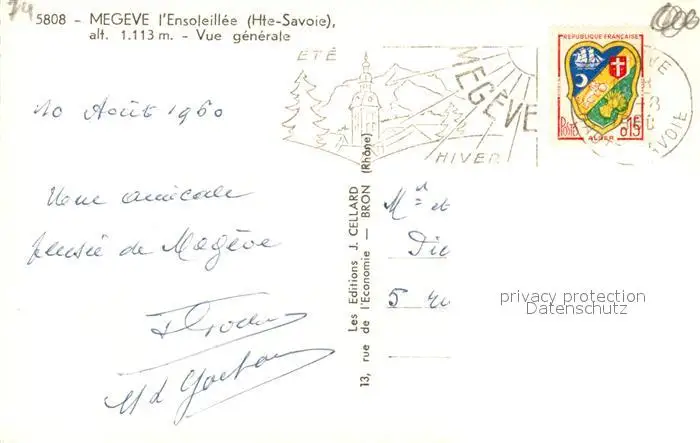 74
5808 - MEGEVE l'Ensoleillée (Hte-Savoie),
alt. 1.113 m. - Vue générale
ÉTÉ
MEGÈVE
HIVER
REPUBLIQUE FRANÇAISE
POSTES 0,15
ALGER
SAVOIE
10 Août 1960
Une amicale
pensée de Megève
Les Editions J. CELLARD
13, rue de l'Economie — BRON (Rhône)
Mr et
5
privacy protection
Datenschutz